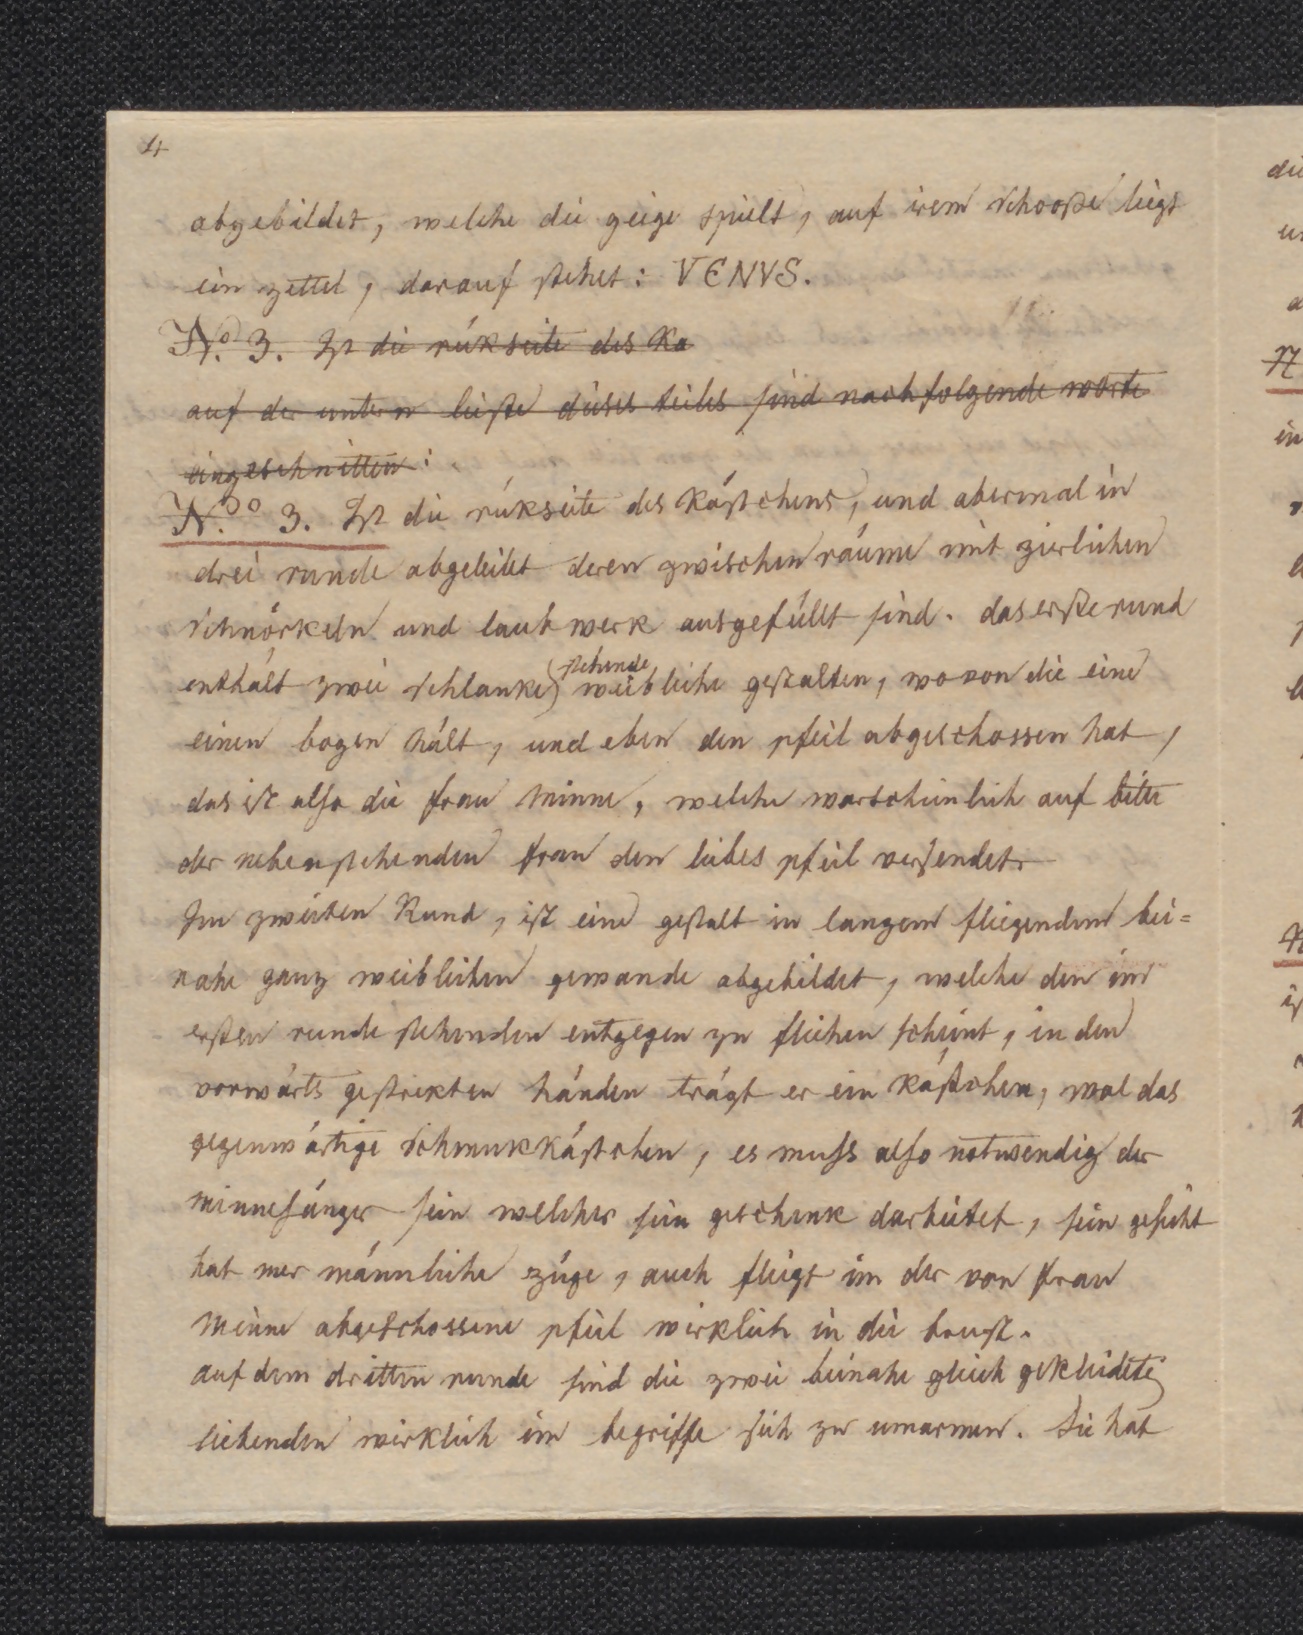 4
abgebildet, welche die geige spielt, auf irem schooße liegt
ein zettel, darauf stehet: VENVS.
No. 3. Ist die rükseite des Ka
auf der untern leiste dieses teiles sind nachfolgende worte
eingeschnitten:
No. 3. Ist die rükseite des Kästchens, und abermal in
drei runde abgeteilet deren zwischenräume mit zierlichen
schnörkeln und laubwerk ausgefüllt sind. das erste rund
stehende
enthält zwei schlanke weibliche gestalten, wovon die eine
einen bogen hält, und eben den pfeil abgeschossen hat,
das ist also die frau Minne, welche warscheinlich auf bitte
der nebenstehenden frau den liebes pfeil versendet.
Im zweiten Rund, ist eine gestalt in langem fliegendem bei=
nahe ganz weiblichen gewande abgebildet, welche den im
ersten runde stehenden entgegen zu fliehen scheint, in den
vorwärts gestrekten händen trägt er ein kästchen, wol das
gegenwärtige schmukkästchen, es muss also notwendig der
minnesänger sein welcher sein geschenk darbietet, sein gesicht
hat mer männliche züge, auch fliegt im der von frau
Minne abgeschossene pfeil wirklich in die brust.
auf dem dritten runde sind die zwei beinahe gleich gekleidete
liebenden wirklich im begriffe sich zu umarmen. Sie hat
die
in